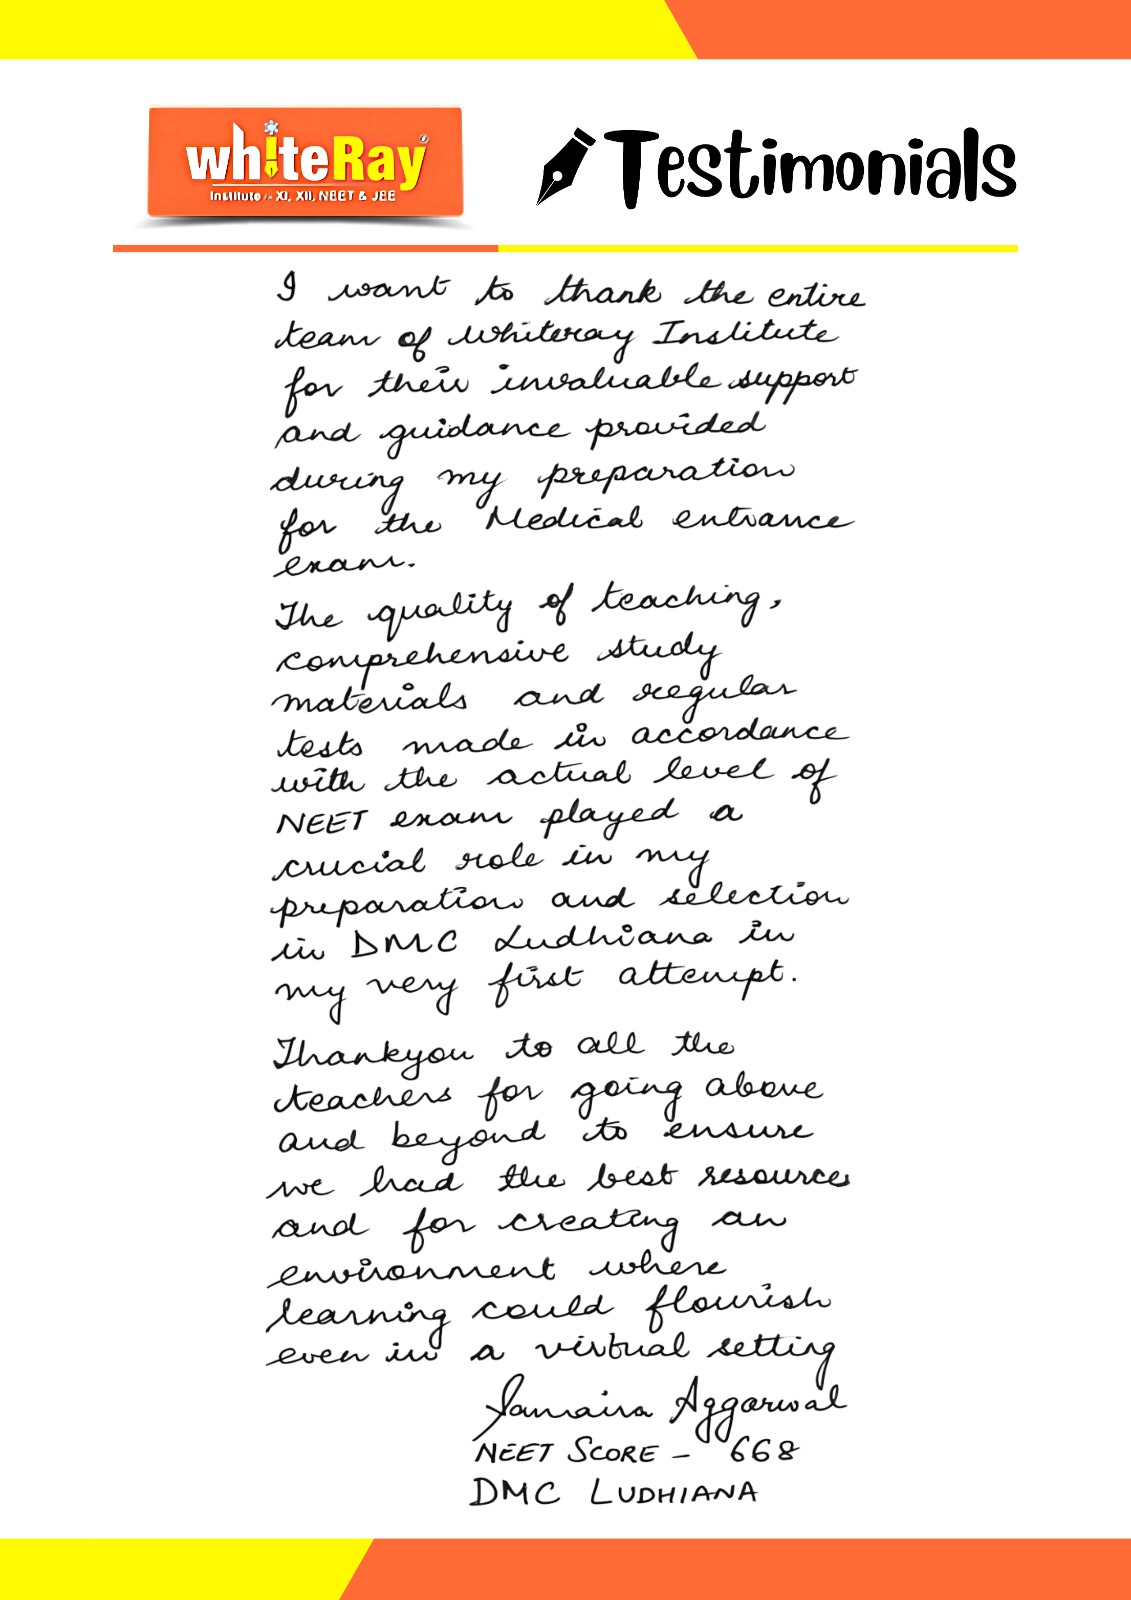 whiteRay
Institute for XI, XII, NEET & JEE
Testimonials
I want to thank the entire
team of Whiteray Institute
for their invaluable support
and guidance provided
during my preparation
for the Medical entrance
exam.
The quality of teaching,
comprehensive study
materials and regular
tests made in accordance
with the actual level of
NEET exam played a
crucial role in my
preparation and selection
in DMC Ludhiana in
my very first attempt.
Thankyou to all the
teachers for going above
and beyond to ensure
we had the best resources
and for creating an
environment where
learning could flourish
even in a virtual setting
Samaira Aggarwal
NEET SCORE - 668
DMC LUDHIANA